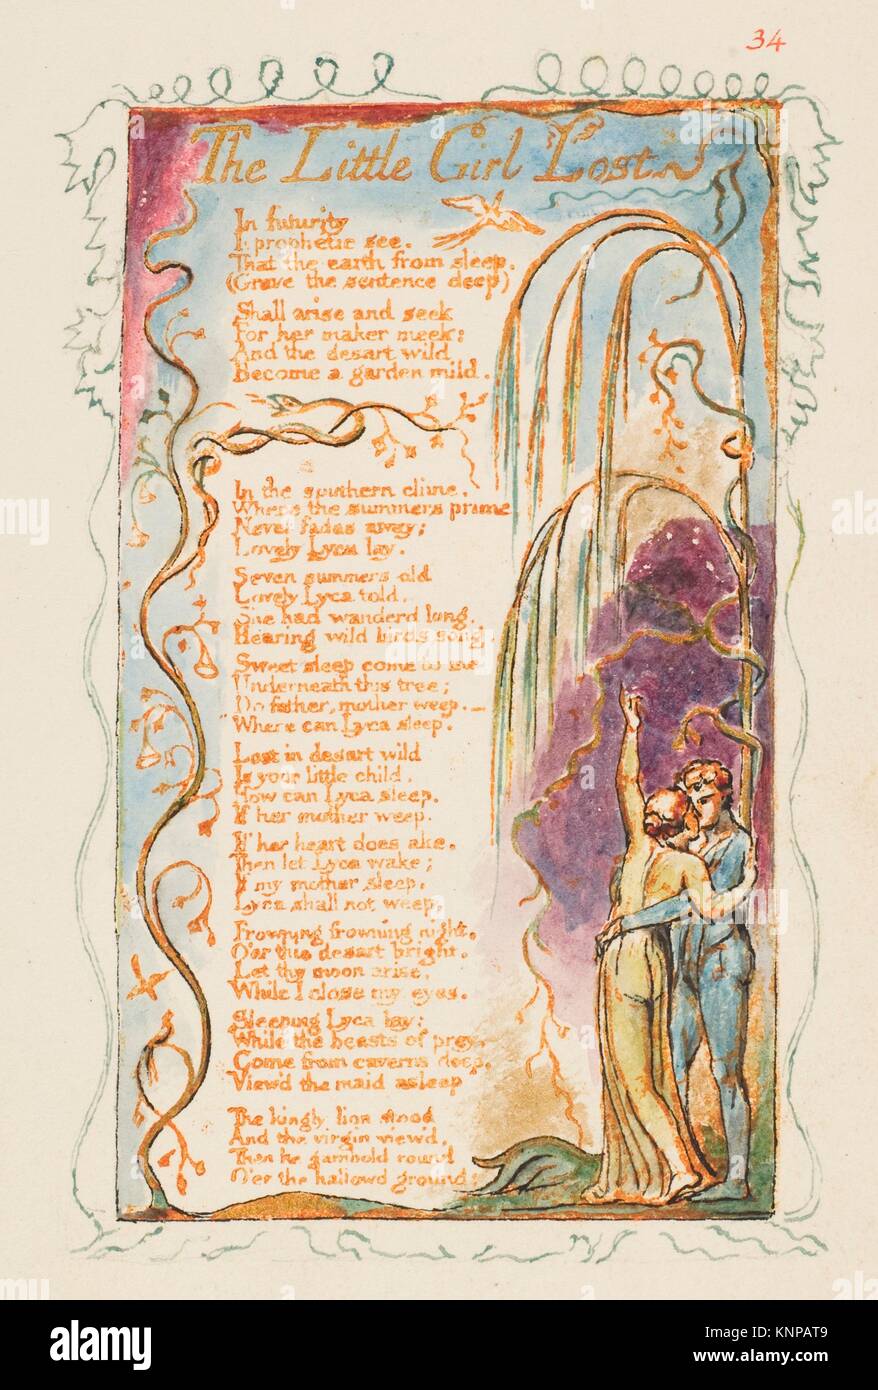 34
The Little Girl Lost
In futurity
I prophetic see.
That the earth from sleep.
(Grave the sentence deep)
Shall arise and seek
For her maker meek:
And the desart wild
Become a garden mild.
In the southern clime,
Where the summers prime
Never fades away;
Lovely Lyca lay.
Seven summers old
Lovely Lyca told,
She had wanderd long,
Hearing wild birds song.
Sweet sleep come to me
Underneath this tree;
Do father, mother weep.—
"Where can Lyca sleep.
Lost in desart wild
Is your little child.
How can Lyca sleep,
If her mother weep.
If her heart does ake,
Then let Lyca wake;
If my mother sleep,
Lyca shall not weep.
Frowning frowning night,
O'er this desart bright,
Let thy moon arise,
While I close my eyes.
Sleeping Lyca lay;
While the beasts of prey,
Come from caverns deep,
View'd the maid asleep
The kingly lion stood
And the virgin view'd,
Then he gambold round
O'er the hallowd ground:
alamy
Image ID: KNPAT9
www.alamy.com